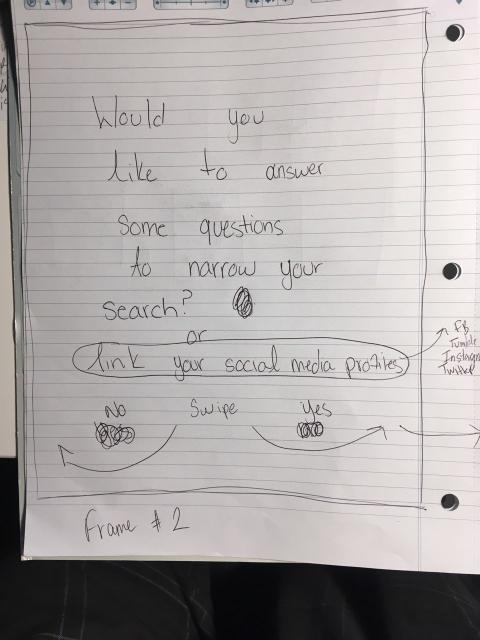 Would you
like to answer
Some questions
to narrow your
search?
or
link your social media profiles
FB
Tumblr
Instagram
Twitter
No Swipe Yes
Frame # 2